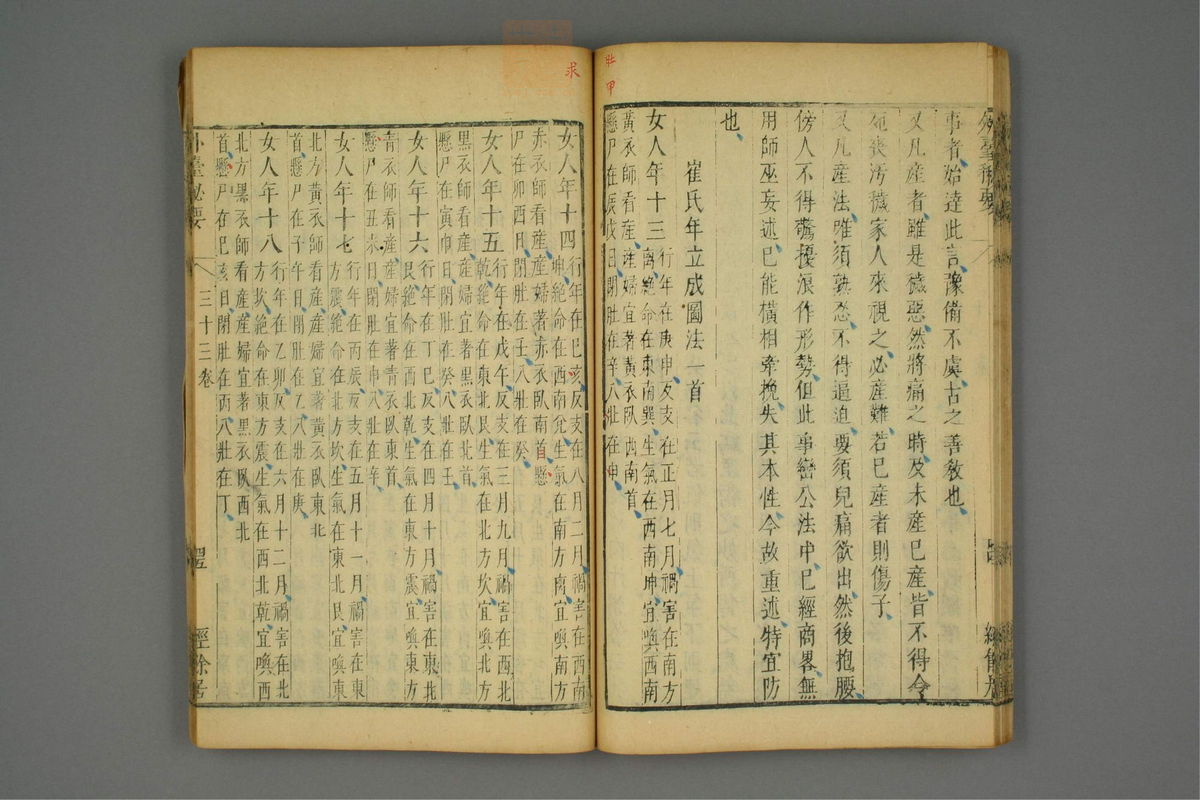 外臺秘要
事者始達此言豫備不虞古之善教也
又凡産者雖是穢惡然將痛之時及未産已産皆不得令
死喪汚穢家人來視之必産難若已産者則傷子
又凡産法唯須熟忍不得逼迫要須兒痛欲出然後抱腰
傍人不得驚擾浪作形勢但此事巒公法中已經商畧無
用師巫妄述已能橫相牽挽失其本性今故重述特宜防
也
崔氏年立成圖法一首
女人年十三
行年在庚申反支在正月七月禍害在南方
離絶命在東南巽生氣在西南坤宜喚西南
黃衣師看産産婦宜著黃衣臥西南首
懸尸在辰戌日閉肚在辛八壯在甲
壯甲
求
女人年十四
行年在巳亥反支在八月二月禍害在西南
坤絶命在西南兊生氣在南方离宜喚南方
赤衣師看産産婦著赤衣臥南首懸
尸在卯酉日閉肚在壬八壯在癸
女人年十五
行年在戊午反支在三月九月禍害在西北
乾絶命在東北艮生氣在北方坎宜喚北方
黑衣師看産産婦宜者黑衣臥北首
懸尸在寅申日閉肚在癸八壯在壬
女人年十六
行年在丁巳反支在四月十月禍害在東北
艮絶命在西北乾生氣在東方震宜喚東方
青衣師看産産婦宜著青衣臥東首
懸尸在丑未日閉肚在申八壯在辛
女人年十七
行年在丙辰反支在五月十一月禍害在東
方震絶命在北方坎生氣在東北艮宜喚東
北方黃衣師看産産婦宜著黃衣臥東北
首懸尸在子午日閉肚在乙八壯在庚
女人年十八
行年在乙卯反支在六月十二月禍害在北
方坎絶命在東方震生氣在西北乾宜喚西
北方黑衣師看産産婦宜著黑衣臥西北
首懸尸在巳亥日閉肚在丙八壯在丁
外臺秘要
三十三卷
經餘居